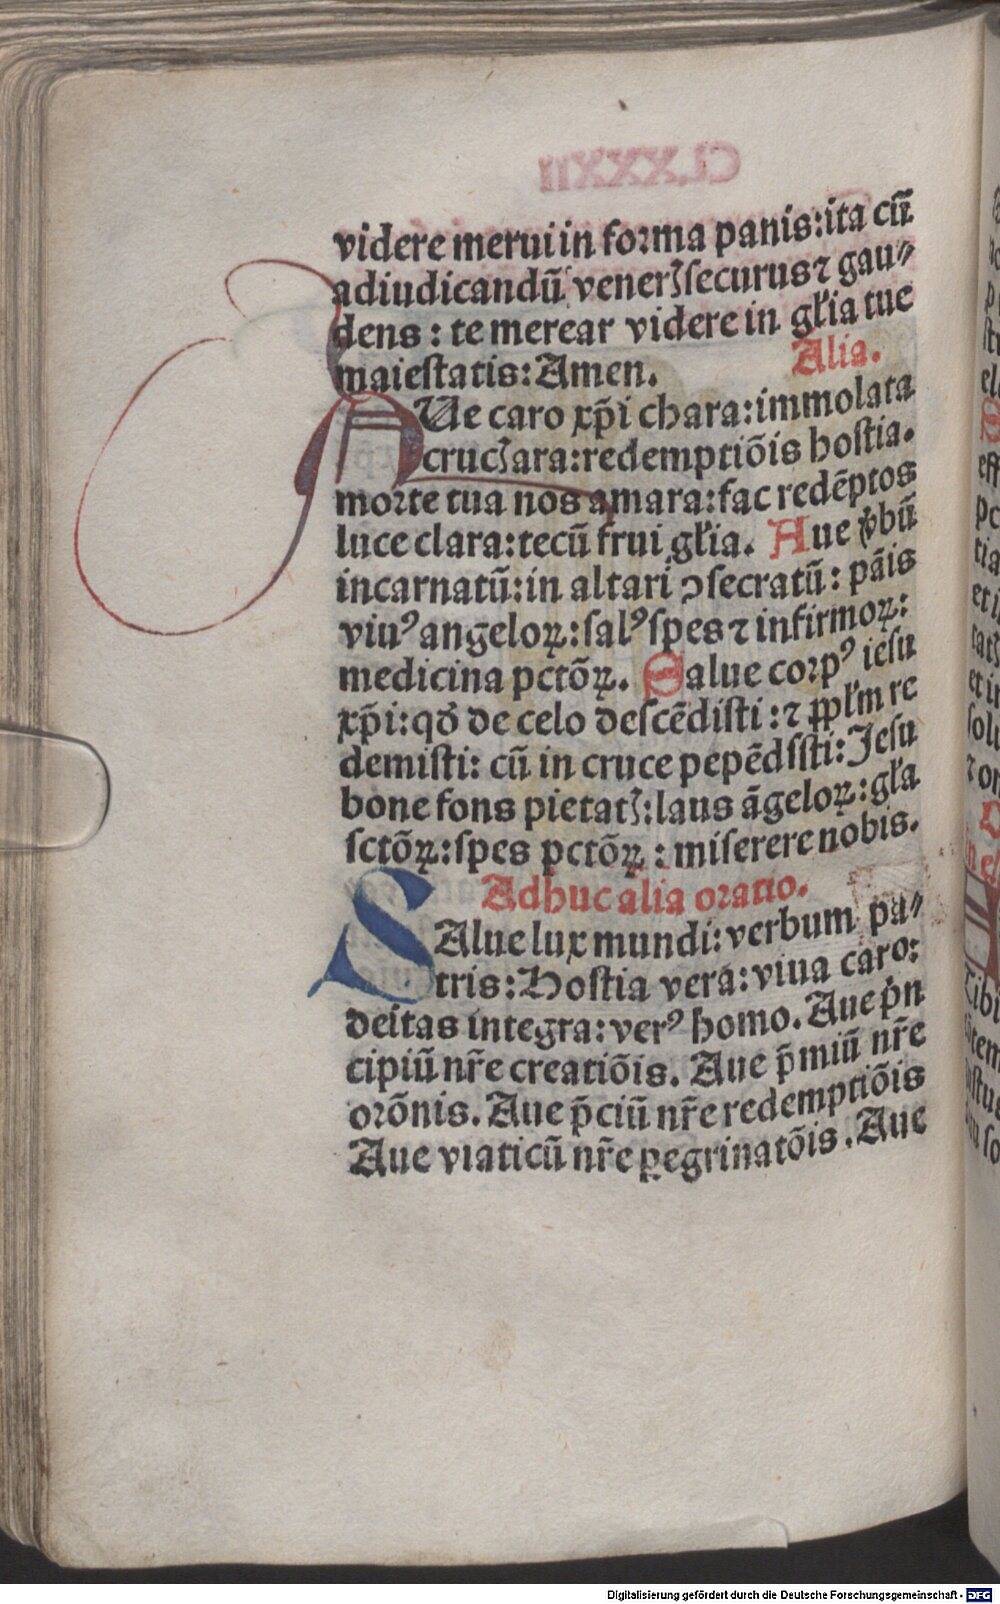 videre merui in forma panis: ita cū
adiudicandū venerꝭ securus ⁊ gau⸗
dens: te merear videre in gl̄ia tue
maiestatis: Amen. Alia.
AUe caro xp̄i chara: immolata
crucꝭ ara: redemptiōis hostia.
morte tua nos amara: fac redēptos
luce clara: tecū frui gl̄ia. Aue v̄bū
incarnatū: in altari ꝯsecratū: pāis
viuꝰ angeloꝝ: salꝰ spes ⁊ infirmoꝝ:
medicina pctōꝝ. Salue corpꝰ iesu
xp̄i: qđ de celo descēdisti: ⁊ ppl̄m re
demisti: cū in cruce pepēdisti: Jesu
bone fons pietatꝭ: laus āgeloꝝ: gl̄a
sctōꝝ: spes pctōꝝ: miserere nobis.
Adhuc alia oratio.
SAlue lux mundi: verbum pa⸗
tris: Hostia vera: viua caro:
deitas integra: verꝰ homo. Aue p̄n
cipiū nr̄e creatiōis. Aue p̄miū nr̄e
orōnis. Aue p̄ciū nr̄e redemptiōis
Aue viaticū nr̄e ꝑegrinatōis. Aue
Digitalisierung gefördert durch die Deutsche Forschungsgemeinschaft - DFG